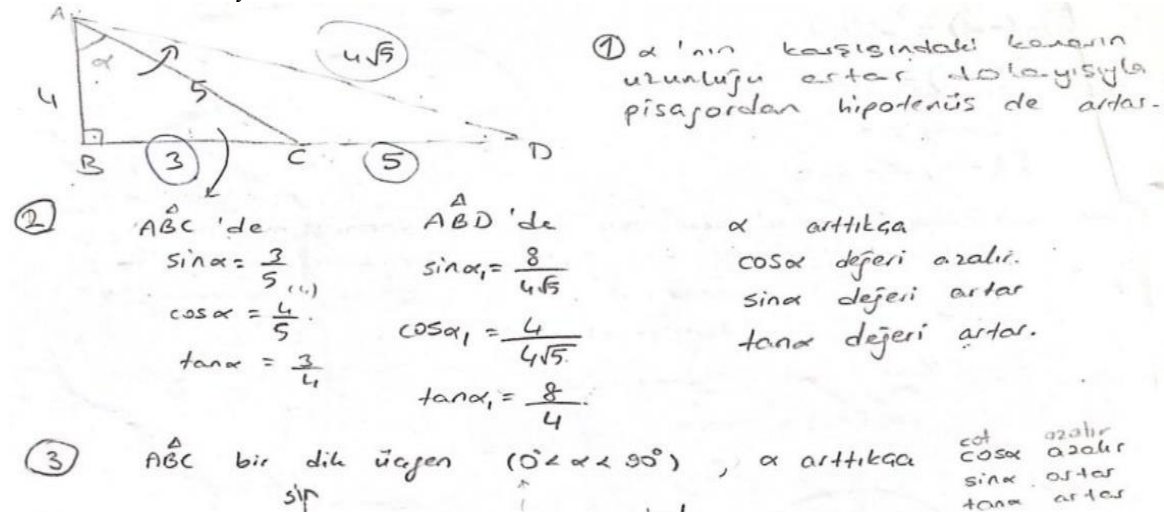 A
α
4√5
4
5
B
3
C
5
D
① α'nın karşısındaki kenarın
uzunluğu artar dolayısıyla
pisagordan hipotenüs de artar.
②
ABC 'de
sinα = 3/5
cosα = 4/5
tanα = 3/4
ABD 'de
sinα₁ = 8/4√5
cosα₁ = 4/4√5
tanα₁ = 8/4
α arttıkça
cosα değeri azalır.
sinα değeri artar
tanα değeri artar.
③ ABC bir dik üçgen (0°<α<90°), α arttıkça
cot azalır
cosα azalır
sinα artar
tanα artar
sin